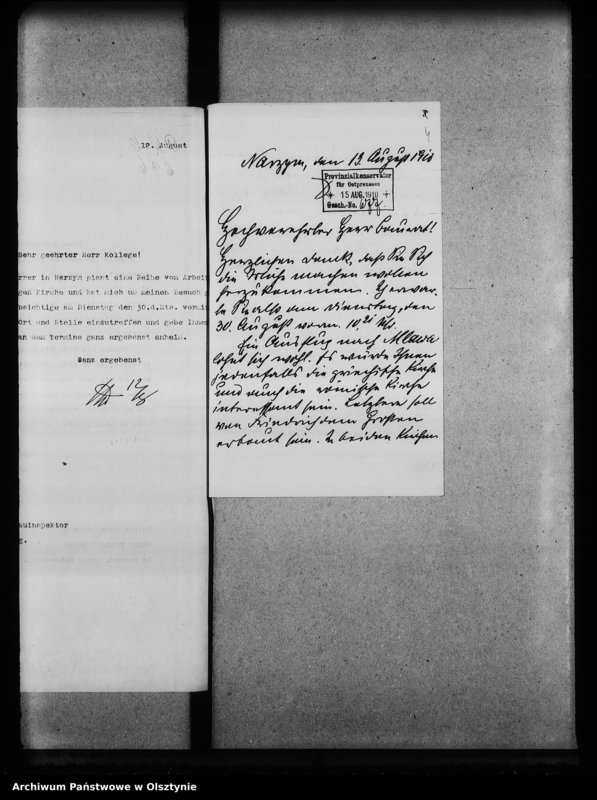 12. August
Sehr geehrter Herr Kollege!
rrer in Narzym plant eine Reihe von Arbei
gen Kirche und hat mich um meinen Besuch
bsichtige am Dienstag den 30.d.Mts. vormi
Ort und Stelle einzutreffen und gebe Ihnen
an dem Termine ganz ergebenst anheim.
Ganz ergebenst
12/8
auinspektor
g.
4
Narzym, den 13. August 1910
Provinzialkonservator
für Ostpreussen
15 AUG. 1910
Gesch.-No.
Hochverehrter Herr Baurat!
Herzlichen Dank, daß Sie Sich
die Mühe machen wollen
herzukommen. Ich erwar-
te Sie also am Dienstag, den
30. August vorm. 10,21 Uhr.
Ein Ausflug nach Mlawa
lohnt sich wohl. Es würde Ihnen
jedenfalls die griechische Kirche
und auch die römische Kirche
interessant sein. Letztere soll
von Friedrich dem Großen
erbaut sein. In beiden Kirchen
Archiwum Państwowe w Olsztynie